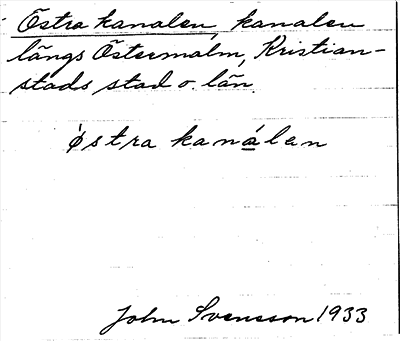 Östra kanalen kanalen
längs Östermalm, Kristian-
stads stad o. län.
ǿstra kanálen
John Svensson 1933